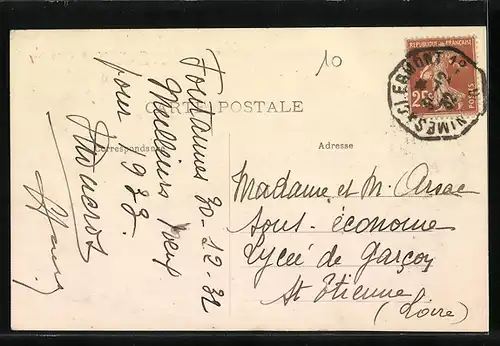 10
CARTE POSTALE
Correspondance
Adresse
REPUBLIQUE FRANÇAISE
POSTES
25c
CLERMONT
NIMES
Fontannes 30-12-32
Meilleurs voeux
pour 1933.
Madame et M. Arsac
sous-économe
Lycée de Garçon
St Etienne
(Loire)